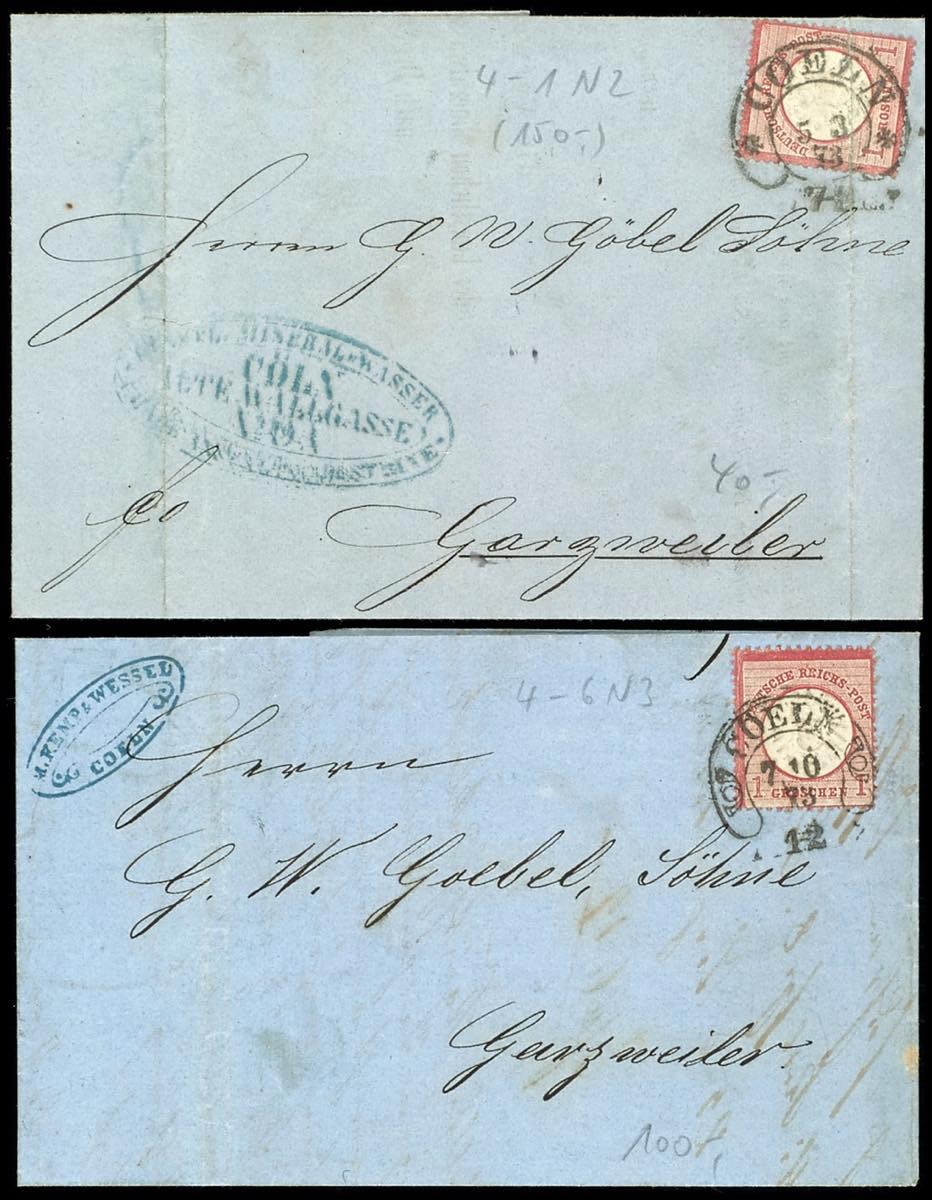 4-1N2
(150,-)
COELN
*
*
5 3
73
1
1
Herrn G. W. Göbel Söhne
MINERAL-WASSER
CÖLN
WALLGASSE
No 19 A
40,-
fco
Garzweiler
M. KEMP & WESSEL
COELN
4-6N3
DEUTSCHE REICHS-POST
COELN
7 10
73
12
1 GROSCHEN 1
Herrn
G. W. Goebel, Söhne
Garzweiler.
100,-